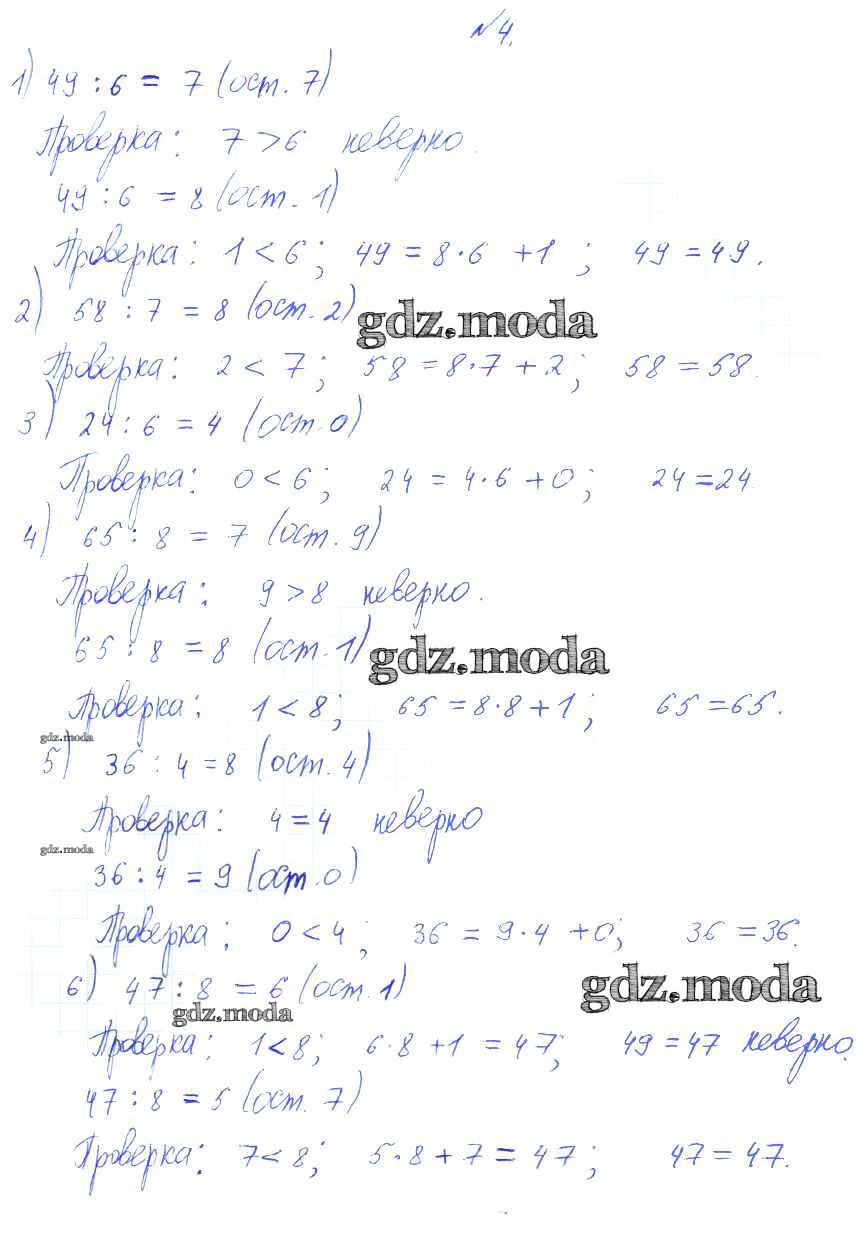 №4.
1) 49 : 6 = 7 (ост. 7)
Проверка: 7 > 6 неверно.
49 : 6 = 8 (ост. 1)
Проверка: 1 < 6; 49 = 8·6 + 1; 49 = 49.
2) 58 : 7 = 8 (ост. 2)
gdz.moda
Проверка: 2 < 7; 58 = 8·7 + 2; 58 = 58.
3) 24 : 6 = 4 (ост. 0)
Проверка: 0 < 6; 24 = 4·6 + 0; 24 = 24.
4) 65 : 8 = 7 (ост. 9)
Проверка: 9 > 8 неверно.
65 : 8 = 8 (ост. 1)
gdz.moda
Проверка: 1 < 8; 65 = 8·8 + 1; 65 = 65.
gdz.moda
5) 36 : 4 = 8 (ост. 4)
Проверка: 4 = 4 неверно
gdz.moda
36 : 4 = 9 (ост. 0)
Проверка: 0 < 4; 36 = 9·4 + 0; 36 = 36.
6) 47 : 8 = 6 (ост. 1)
gdz.moda
gdz.moda
Проверка: 1 < 8; 6·8 + 1 = 47; 49 = 47 неверно.
47 : 8 = 5 (ост. 7)
Проверка: 7 < 8; 5·8 + 7 = 47; 47 = 47.